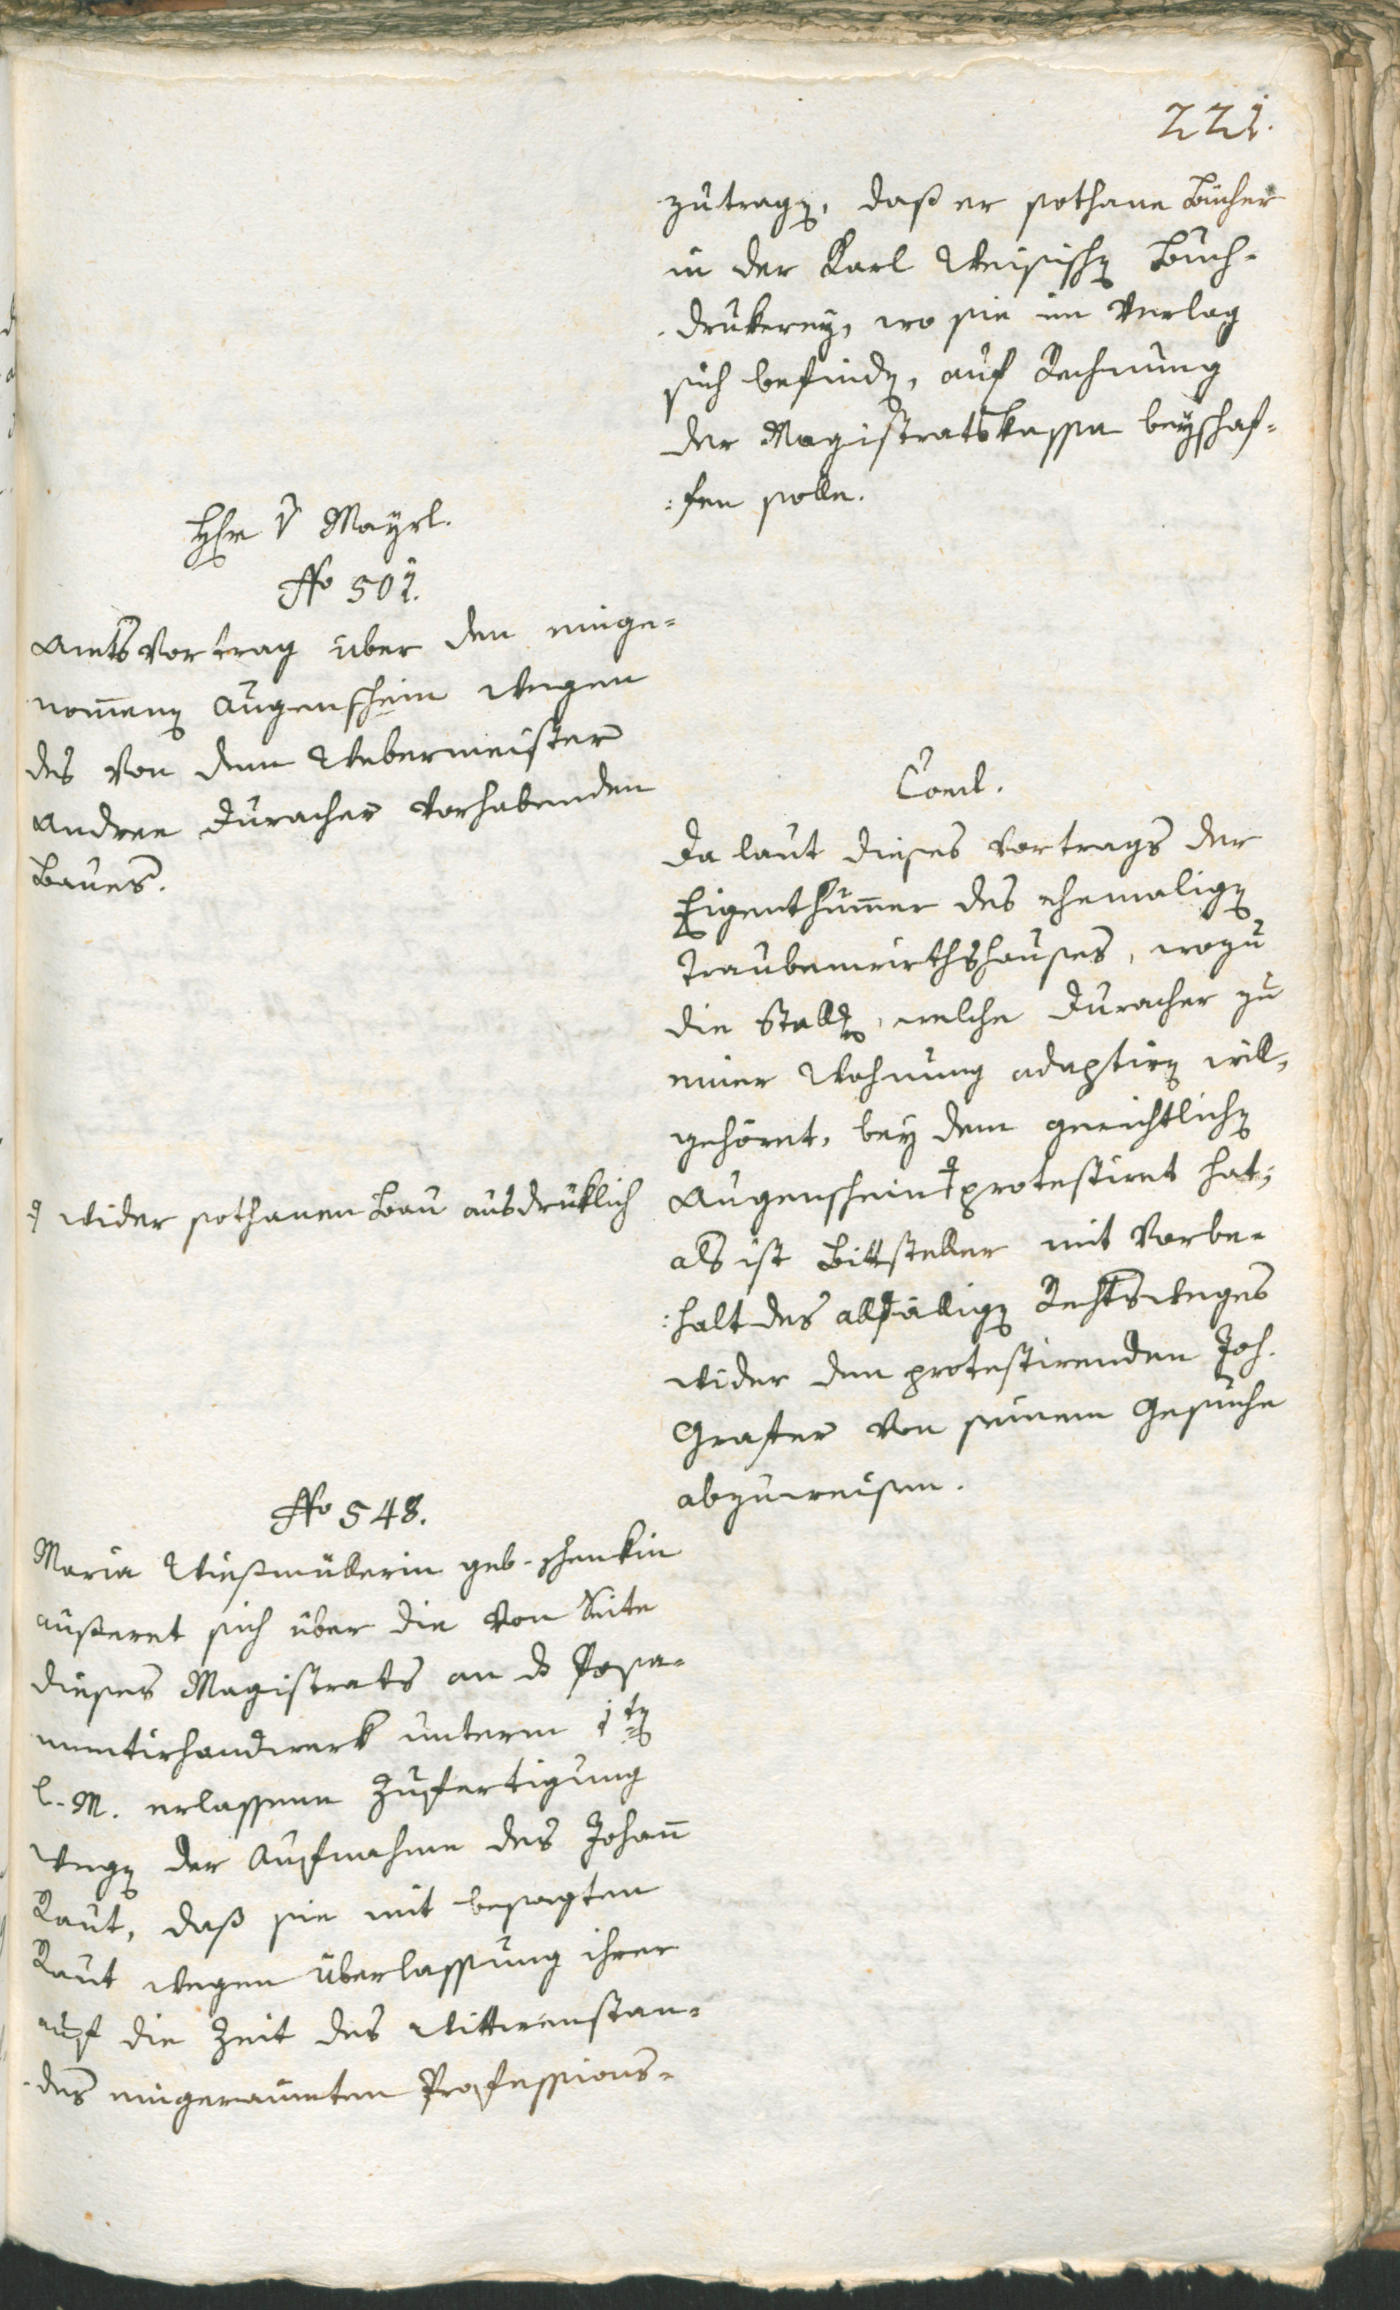 221.
zutragen, daß er sothane Bücher
in der Karl Weisischen Buch-
drukerey, wo sie im Verlag
sich befinden, auf Rechnung
der Magistratskassa beyschaf-
:fen solle.
Hhr v Mayrl.
No 501.
Amtsvortrag über den einge-
nom̄enen Augenschein wegen
des von dem Webermeister
Andree Duracher vorhabenden
Baues.
Concl.
Da laut dieses Vortrags der
Eigenthüm̄er des ehemaligen
Traubenwirthshauses, wozu
die Stallen, welche Duracher zu
einer Wohnung adaptiren will,
gehöret, bey dem gerichtlichen
Augenschein ‡ protestiret hat;
‡ wider sothanen Bau ausdrüklich
als ist Bittsteller mit Vorbe-
:halt des allfälligen Rechtsweges
wider den protestirenden Joh.
Graster von seinem Gesuche
abzuweisen.
No 548.
Maria Wießmüllerin geb. Schenkin
äußeret sich über die von Seite
dieses Magistrats an das Posa-
mentirhandwerk unterm 1ten
l. M. erlassene Zufertigung
wegen der Aufnahme des Johann
Raut, daß sie mit besagten
Raut wegen Überlassung ihrer
auf die Zeit des Wittwenstan-
des eingeraumten Professions-